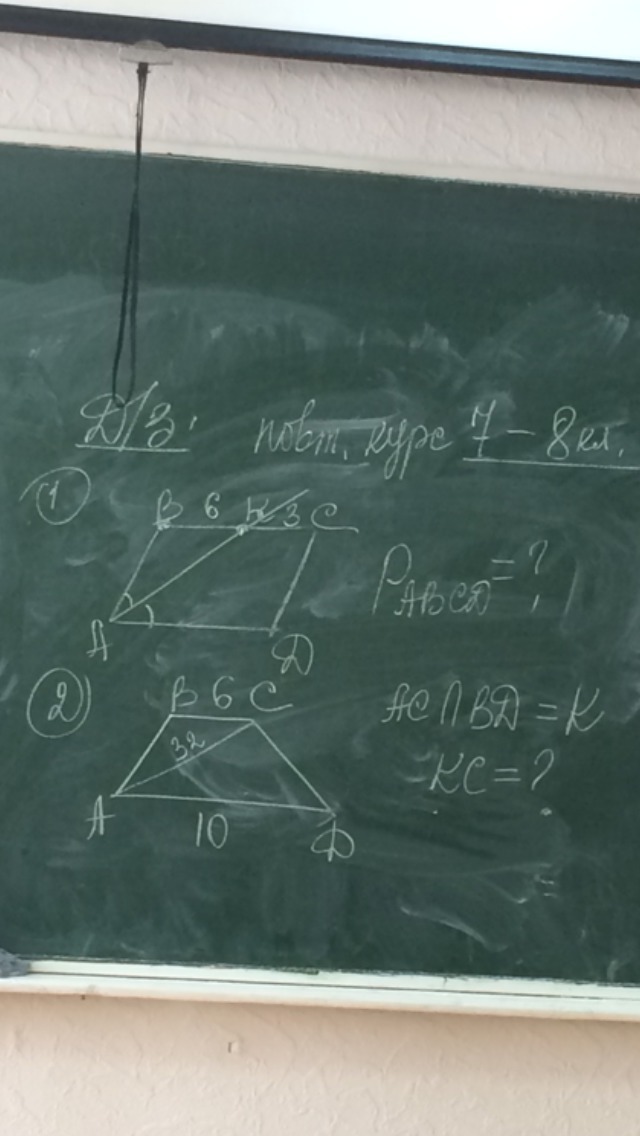 Д/З: повт. курс 7 – 8 кл.
1
B 6 K 3 C
A D
P ABCD = ?
2
B 6 C
32
A 10 D
AC ∩ BD = K
KC = ?
=